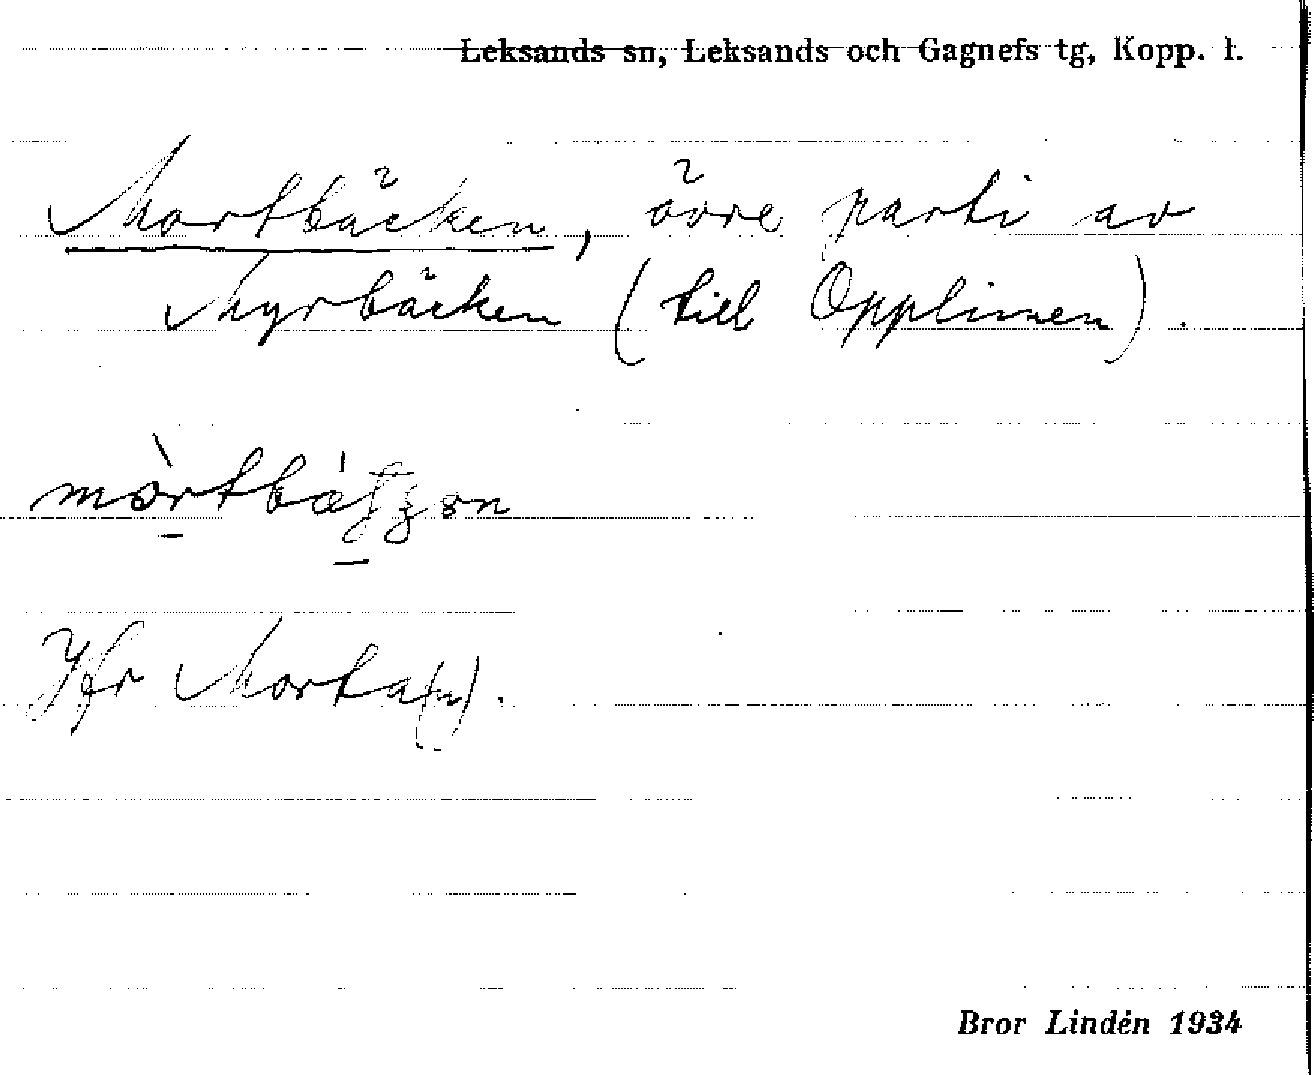 Leksands sn, Leksands och Gagnefs tg, Kopp. l.
Mortbäcken, övre parti av
Myrbäcken (till Opplimen).
Jfr Morta(n).
Bror Lindén 1934